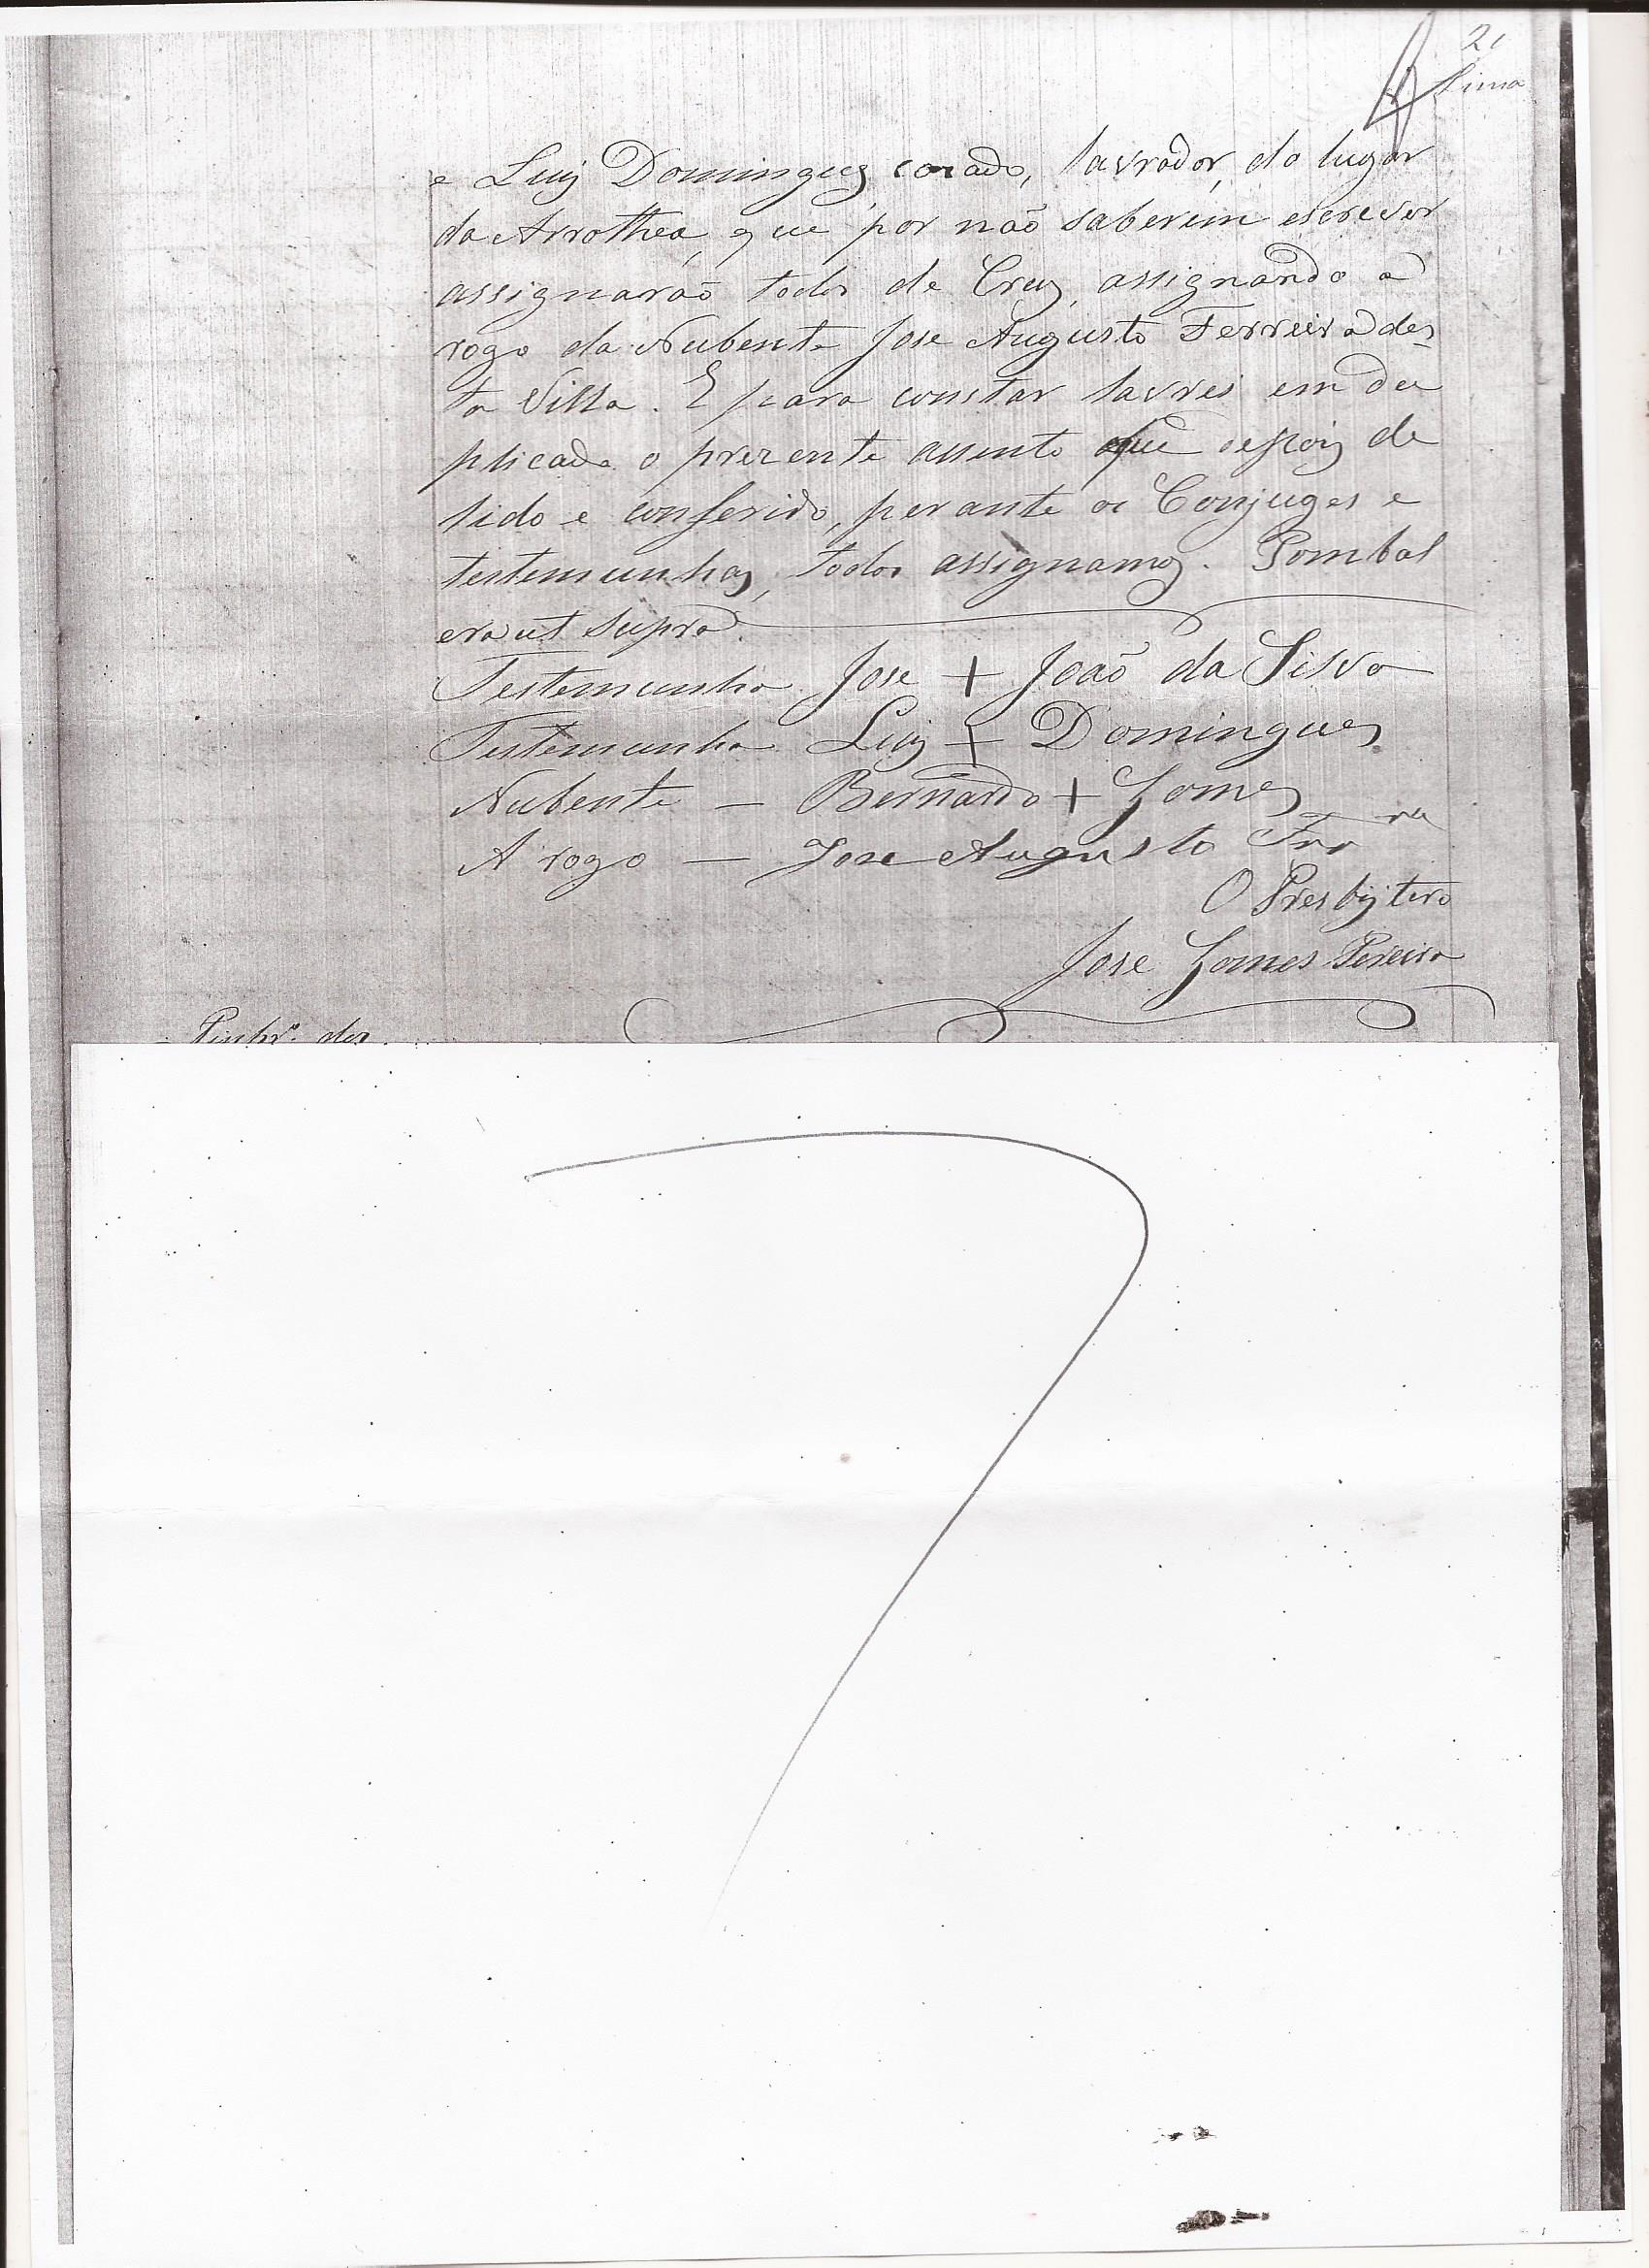 21
Lima
e Luiz Domingues, casado, lavrador, do lugar
da Arrothea, que por não saberem escrever
assignarão todos de Cruz, assignando a
rogo da Nubente Jose Augusto Ferreira des-
ta Villa. E para constar lavrei em du
plicado o prezente assento que depois de
lido e conferido, perante os Conjuges e
testemunhas, todos assignamos. Pombal
era ut supra.
Testemunha Jose + João da Silva
Testemunha Luiz + Domingues
Nubente — Bernardo + Gomes
A rogo — Jose Augusto Frr ra
O Presbytero
Jose Gomes Pereira
Pinhr.o dos